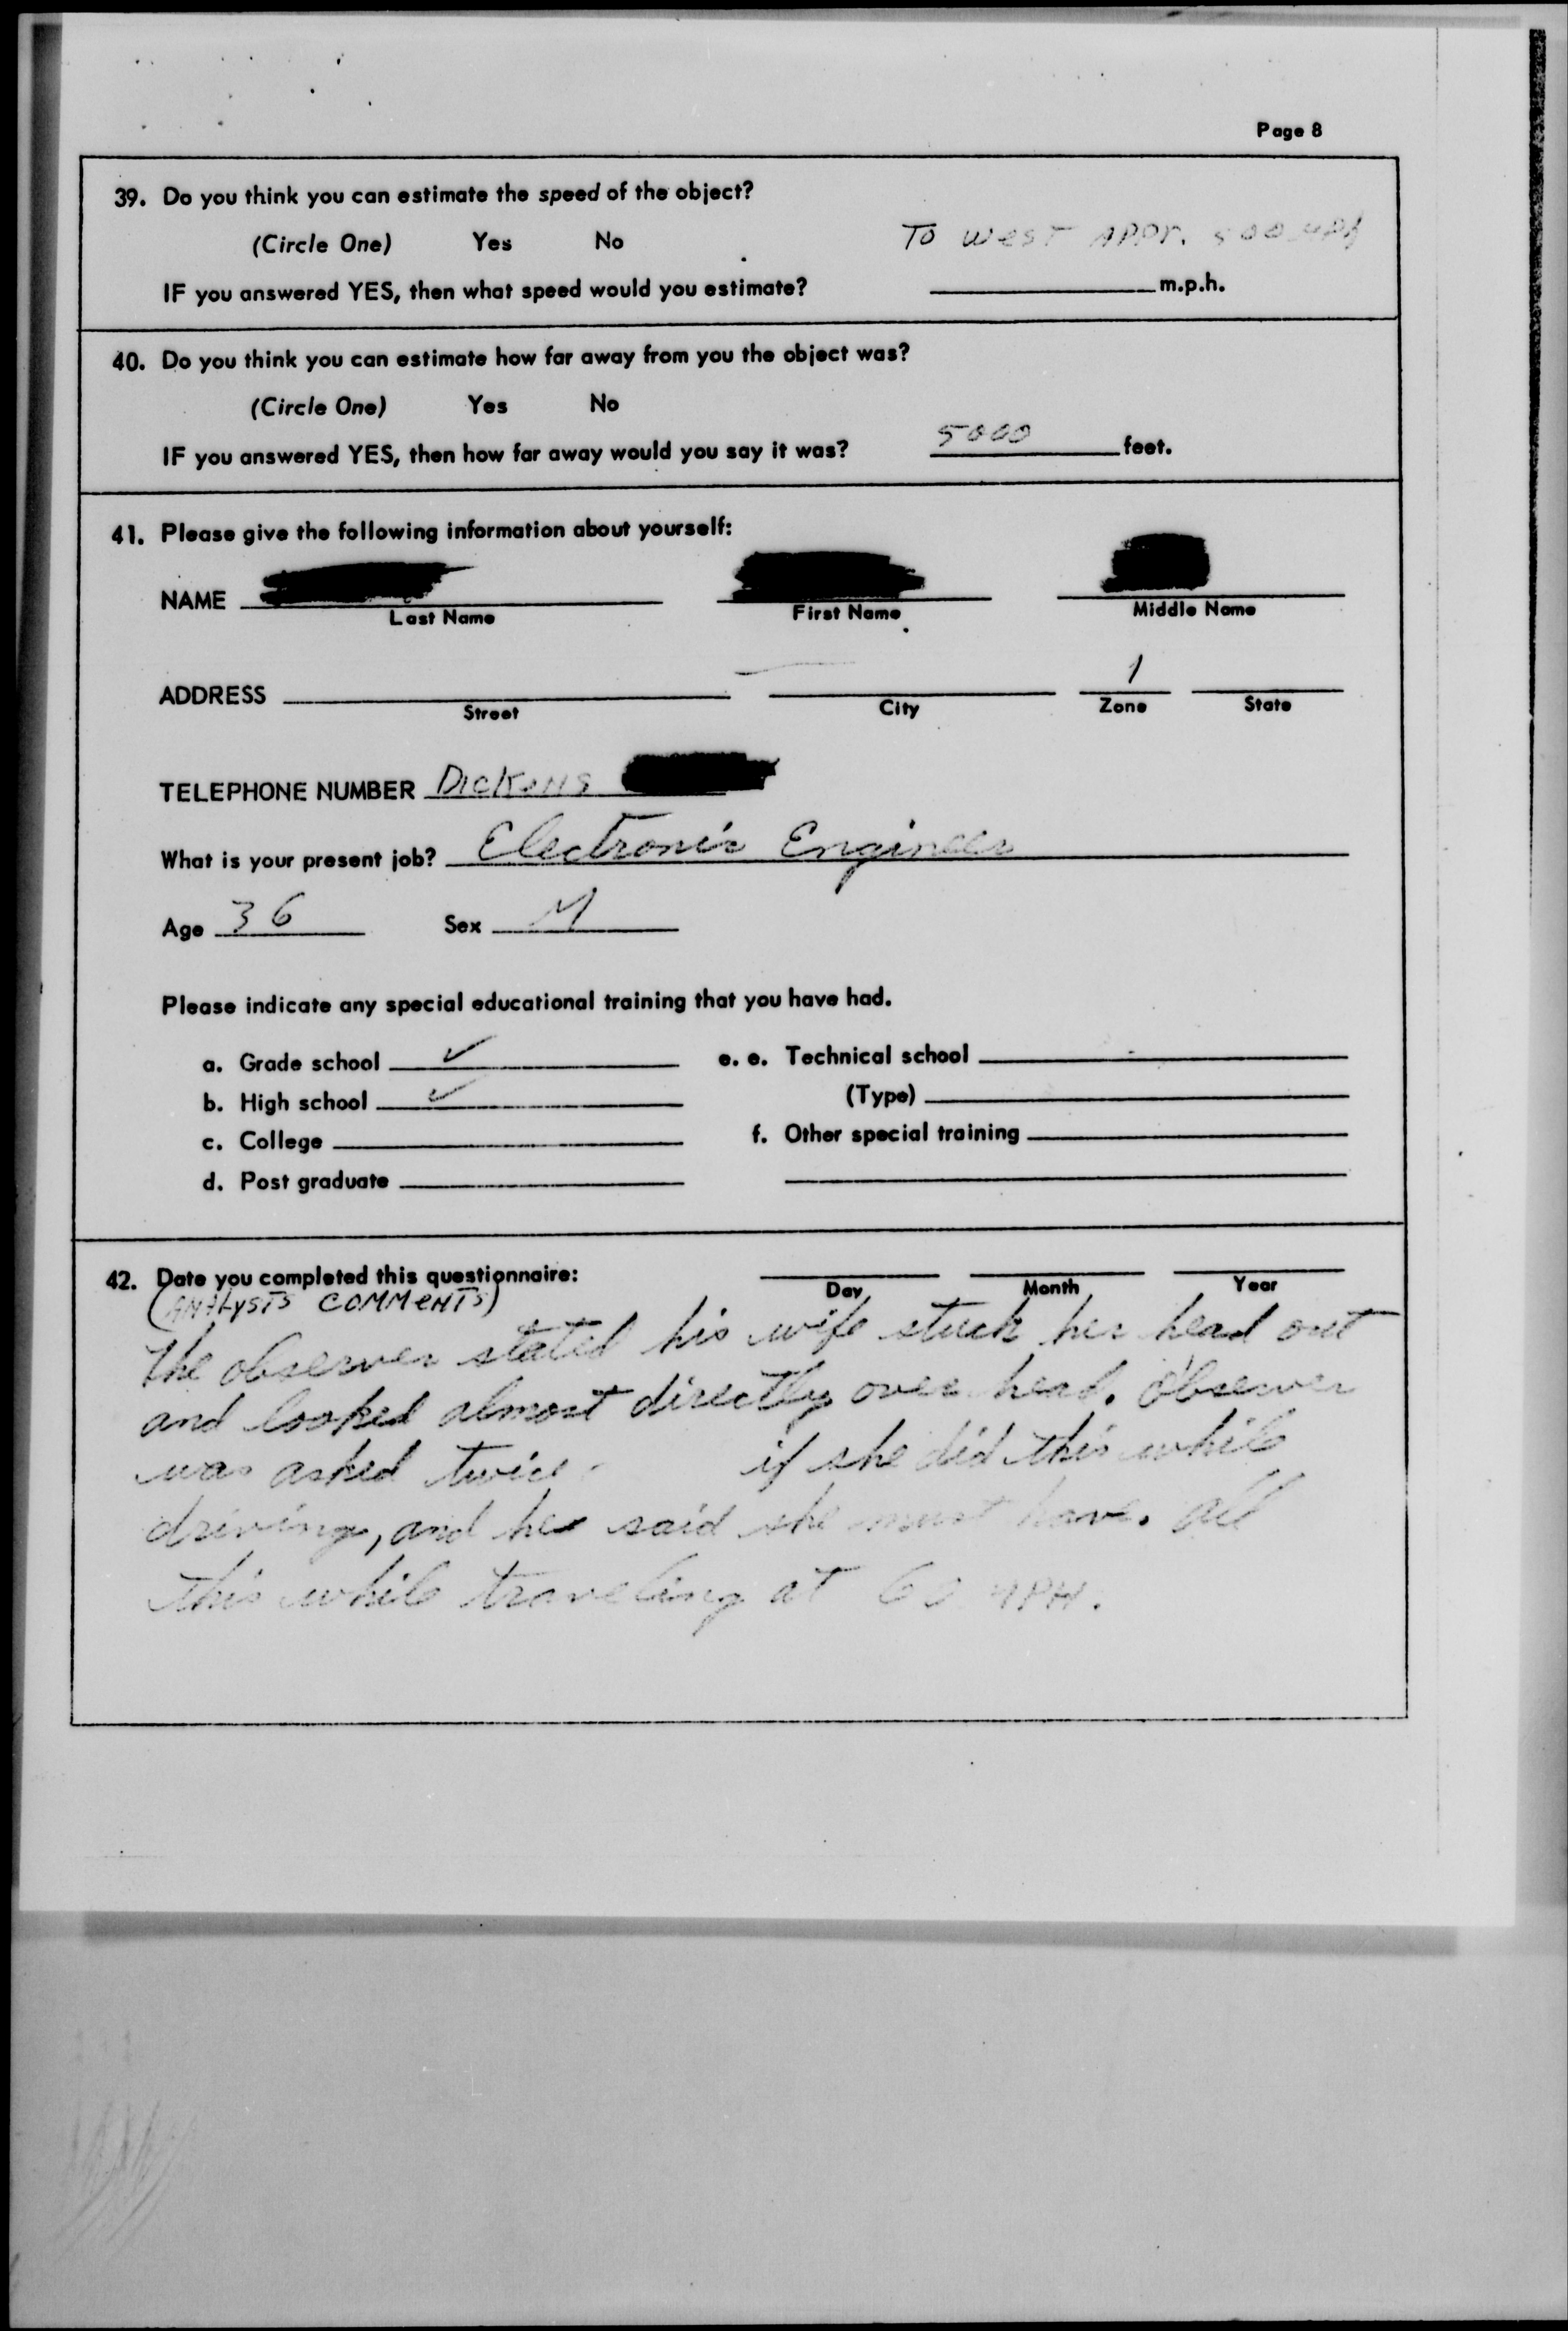 Page 8
39. Do you think you can estimate the speed of the object?
(Circle One) Yes No
TO WEST APPR. 500 MPH
IF you answered YES, then what speed would you estimate? m.p.h.
40. Do you think you can estimate how far away from you the object was?
(Circle One) Yes No
IF you answered YES, then how far away would you say it was? 5000 feet.
41. Please give the following information about yourself:
NAME
Last Name First Name Middle Name
ADDRESS 1
Street City Zone State
TELEPHONE NUMBER DICKENS
What is your present job? Electronic Engineer
Age 36 Sex M
Please indicate any special educational training that you have had.
a. Grade school ✓ e. e. Technical school
b. High school ✓ (Type)
c. College f. Other special training
d. Post graduate
42. Date you completed this questionnaire:
Day Month Year
(ANALYSTS COMMENTS)
The observer stated his wife stuck her head out
and looked almost directly over head. Observer
was asked twice if she did this while
driving, and he said she must have. All
this while traveling at 60 MPH.